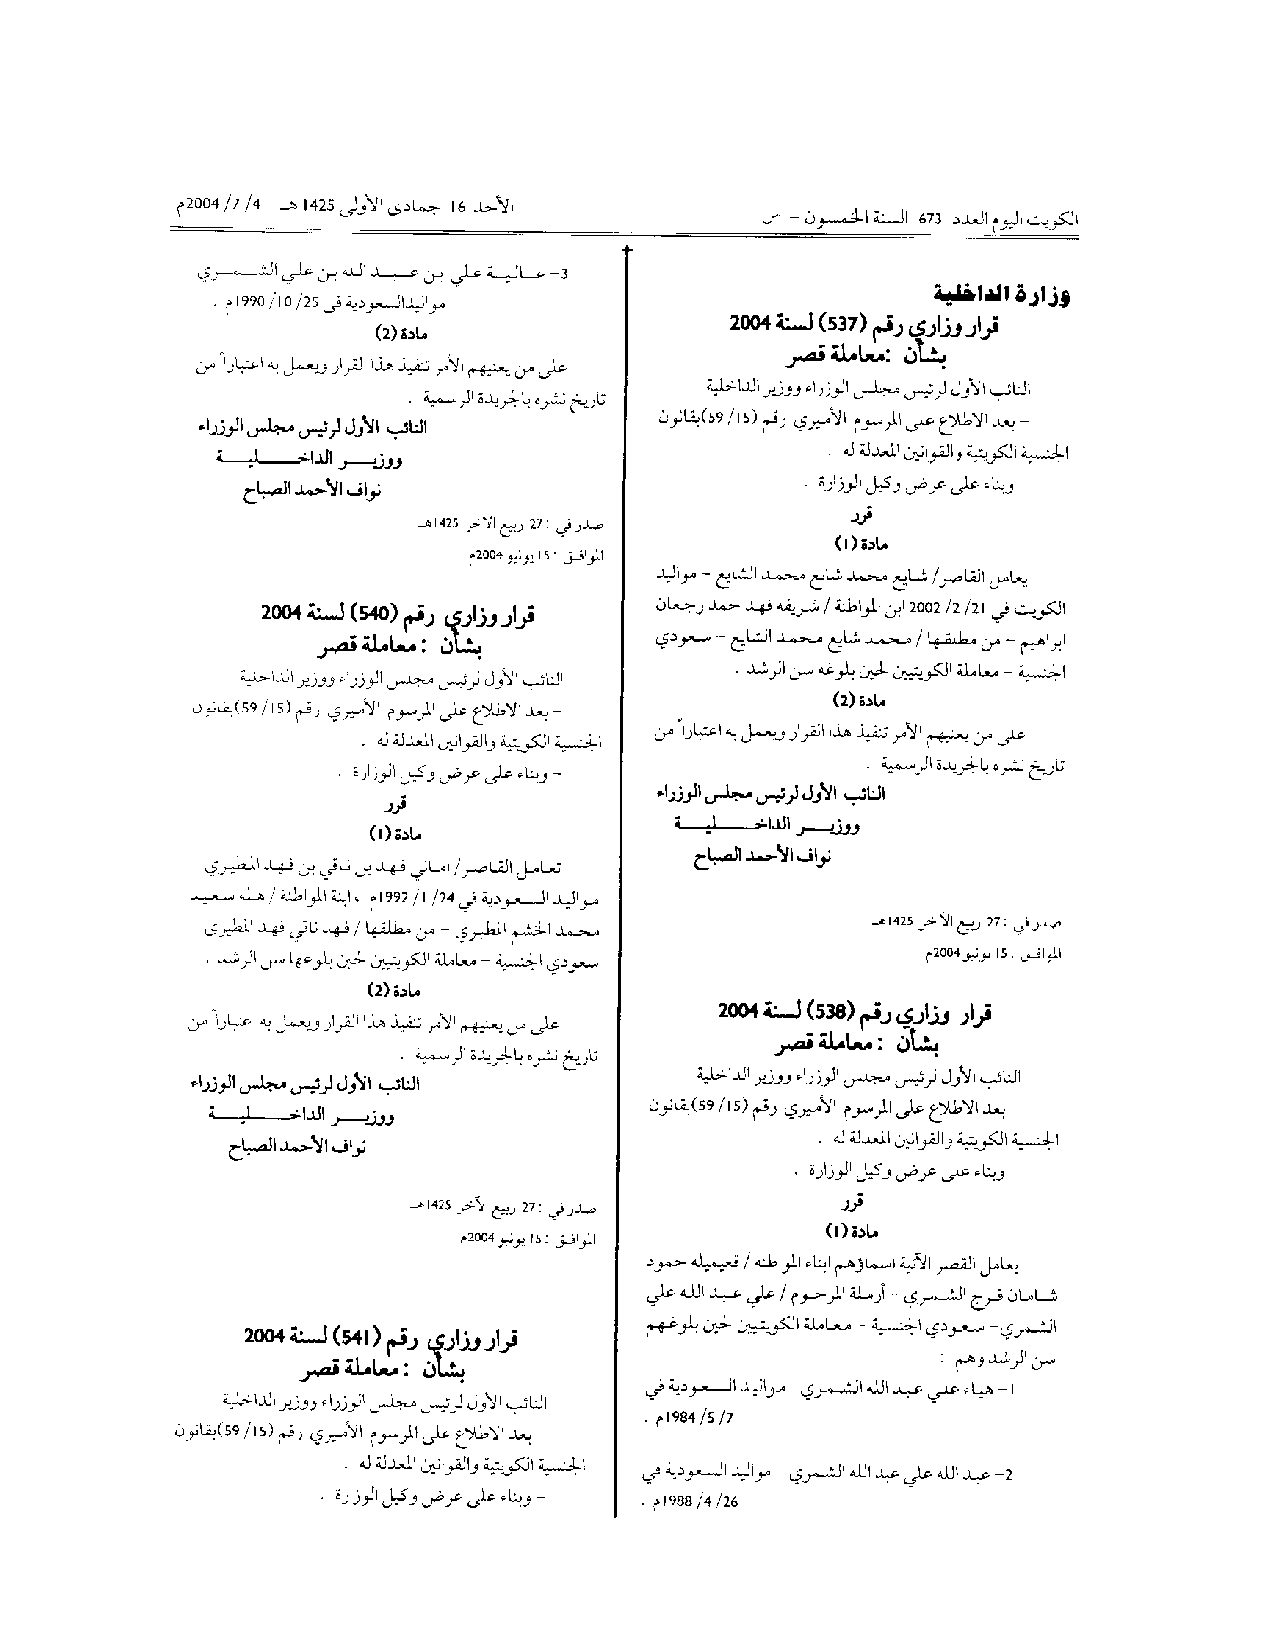 الكويت اليوم العدد 673 السنة الخمسون -
الأحد 16 جمادى الأولى 1425 هـ 4/ 7/ 2004م
وزارة الداخلية
قرار وزاري رقم (537) لسنة 2004
بشأن : معاملة قصر
النائب الأول لرئيس مجلس الوزراء ووزير الداخلية
- بعد الاطلاع على المرسوم الأميري رقم (15/ 59) بقانون
الجنسية الكويتية والقوانين المعدلة له .
وبناء على عرض وكيل الوزارة .
قرر
مادة (1)
يعامل القاصر/ شايع محمد شايع محمد الشايع - مواليد
الكويت في 21/ 2/ 2002 ابن المواطنة/ شريفه فهد حمد رجعان
ابراهيم - من مطلقها / محمد شايع محمد الشايع - سعودي
الجنسية - معاملة الكويتيين لحين بلوغه سن الرشد .
مادة (2)
على من يعنيهم الأمر تنفيذ هذا القرار ويعمل به اعتباراً من
تاريخ نشره بالجريدة الرسمية .
النائب الأول لرئيس مجلس الوزراء
ووزيـــر الداخـــليـــة
نواف الأحمد الصباح
صدر في : 27 ربيع الآخر 1425هـ
الموافق : 15 يونيو 2004م
قرار وزاري رقم (538) لسنة 2004
بشأن : معاملة قصر
النائب الأول لرئيس مجلس الوزراء ووزير الداخلية
بعد الاطلاع على المرسوم الأميري رقم (15/ 59) بقانون
الجنسية الكويتية والقوانين المعدلة له .
وبناء على عرض وكيل الوزارة .
قرر
مادة (1)
يعامل القصر الآتية اسماؤهم ابناء المواطنه / حمود
شامان فرج الشمري - أرملة المرحوم / علي عبد الله علي
الشمري- سعودي الجنسية - معاملة الكويتيين لحين بلوغهم
سن الرشد وهم :
1- هياء علي عبد الله الشمري مواليد السعودية في
7/ 5/ 1984م .
2- عبد الله علي عبد الله الشمري مواليد السعودية في
26/ 4/ 1988م .
3- عـاليـة علي بن عـبـد الله بن علي الشـمـري
مواليد السعودية في 25/ 10/ 1990م .
مادة (2)
على من يعنيهم الأمر تنفيذ هذا القرار ويعمل به اعتباراً من
تاريخ نشره بالجريدة الرسمية .
النائب الأول لرئيس مجلس الوزراء
ووزيـــر الداخـــليـــة
نواف الأحمد الصباح
صدر في : 27 ربيع الآخر 1425هـ
الموافق : 15 يونيو 2004م
قرار وزاري رقم (540) لسنة 2004
بشأن : معاملة قصر
النائب الأول لرئيس مجلس الوزراء ووزير الداخلية
- بعد الاطلاع على المرسوم الأميري رقم (15/ 59) بقانون
الجنسية الكويتية والقوانين المعدلة له .
- وبناء على عرض وكيل الوزارة .
قرر
مادة (1)
تعامل القاصر/ اماني فهد بن فهد المطيري
مواليد السعودية في 24/ 1/ 1992م ، ابنة المواطنة / سعيد
محمد المطيري - من مطلقها / فهد فهد المطيري
سعودي الجنسية - معاملة الكويتيين لحين بلوغها سن الرشد .
مادة (2)
على من يعنيهم الأمر تنفيذ هذا القرار ويعمل به اعتباراً من
تاريخ نشره بالجريدة الرسمية .
النائب الأول لرئيس مجلس الوزراء
ووزيـــر الداخـــليـــة
نواف الأحمد الصباح
صدر في : 27 ربيع الآخر 1425هـ
الموافق : 15 يونيو 2004م
قرار وزاري رقم (541) لسنة 2004
بشأن : معاملة قصر
النائب الأول لرئيس مجلس الوزراء ووزير الداخلية
بعد الاطلاع على المرسوم الأميري رقم (15/ 59) بقانون
الجنسية الكويتية والقوانين المعدلة له .
- وبناء على عرض وكيل الوزارة .